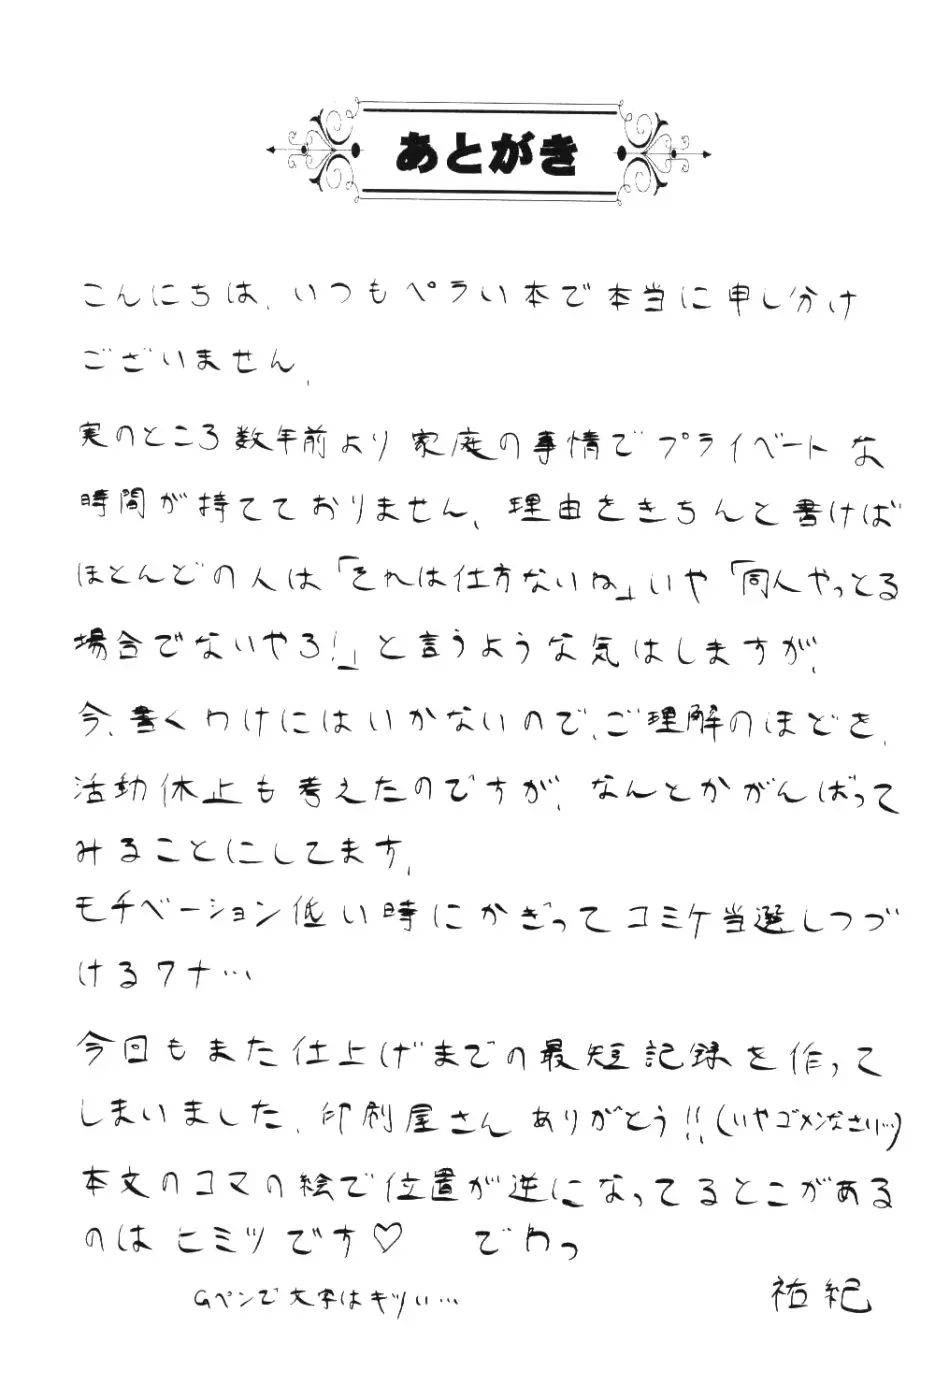 あとがき
こんにちは、いつもペラい本で本当に申し分け
ございません、
実のところ数年前より家庭の事情でプライベートな
時間が持てておりません、理由をきちんと書けば
ほとんどの人は「それは仕方ないね」いや「同人やっとる
場合でないやろ!」と言うような気はしますが、
今、書くわけにはいかないので、ご理解のほどを、
活動休止も考えたのですが、なんとかがんばって
みることにしてます、
モチベーション低い時にかぎってコミケ当選しつづ
けるワナ…
今回もまた仕上げまでの最短記録を作って
しまいました、印刷屋さんありがとう!!(いやゴメンなさい…)
本文のコマの絵で位置が逆になってるとこがある
のはヒミツです♡ でわっ
Gペンで文字はキツい…
祐紀